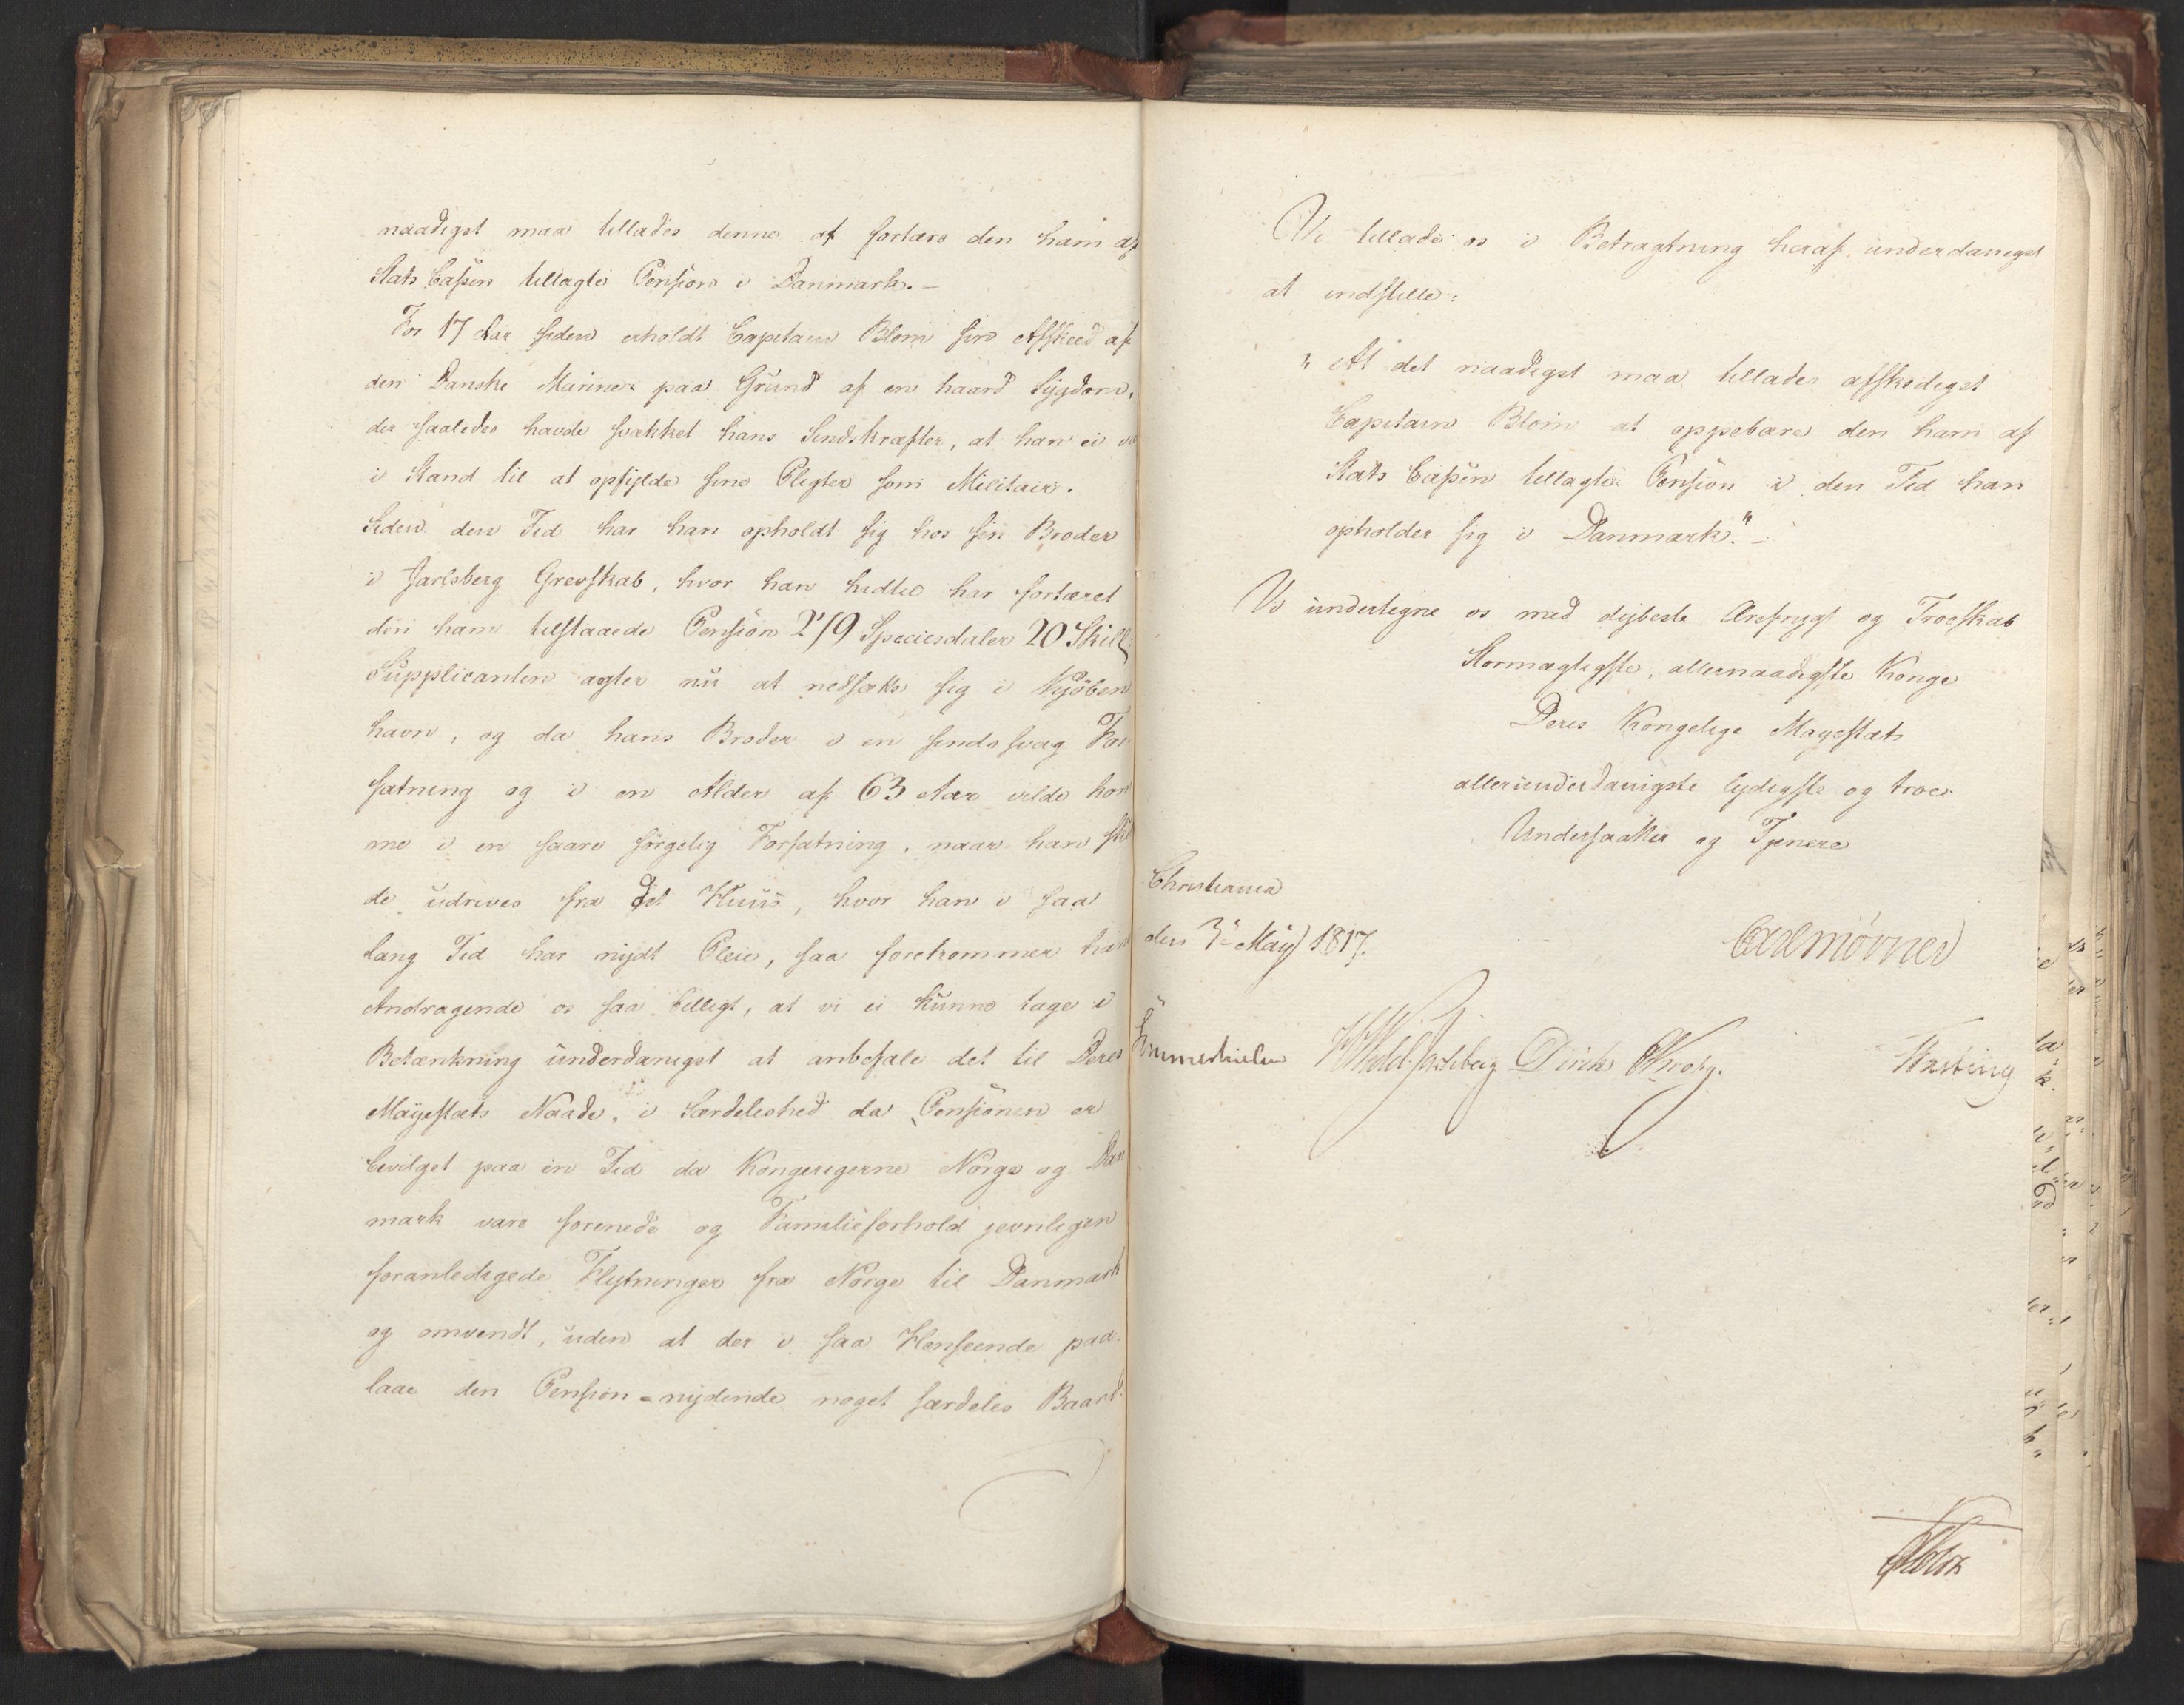 naadigst maa tillades denne at fortære den ham af
Stats Cassen tillagte Pension i Danmark. –
For 17 Aar siden erholdt Capitain Blom sin Afskeed af
den Danske Marine paa Grund af en haard Sygdom,
der saaledes havde svækket hans Sindskræfter, at han ei va
i Stand til at opfylde sine Pligter som Militair.
Siden den Tid har han opholdt sig hos sin Broder
i Jarlsberg Grevskab, hvor han hidtil har fortæret
den ham tilstaaede Pension 279 Speciesdaler 20 Skill:
Supplicanten agter nu at nedsætte sig i Kjöben
havn, og da hans Broder i en sindssvag For
fatning og i en Alder af 63 Aar vilde kom
me i en saare sörgelig Forfatning, naar han sku
de udrives fra det Huus, hvor han i saa
lang Tid har nydt Pleie, saa forekommer han
Andragende os saa billigt, at vi ei kunne tage i
Betænkning underdanigst at anbefale det til Deres
Mayestæts Naade, i Særdeleshed da Pensionen er
bevilget paa en Tid da Kongerigerne Norge og Dan
mark vare forenede og Familieforhold jevnligen
foranledigede Flytninger fra Norge til Danmark
og omvendt, uden at der i saa Henseende paa
laae den Pension-nydende noget særdeles Baand.
Vi tillade os i Betragtning heraf underdanigst
at indstille:
"At det naadigst maa tillades afskediget
Capitain Blom at oppebære den ham af
Stats Cassen tillagte Pension i den Tid han
opholder sig i Danmark." –
Vi undertegne os med dybeste Ærefrygt og Troeskab
Stormægtigste, allernaadigste Konge
Deres Kongelige Mayestæts
allerunderdanigste lydigste og troe
Undersaatter og Tjenere
Christiania
den 3die May 1817.
Carl Mörner
Sommerhielm HWedel Jarlsberg Diriks CKrohg. Fasting
Holst